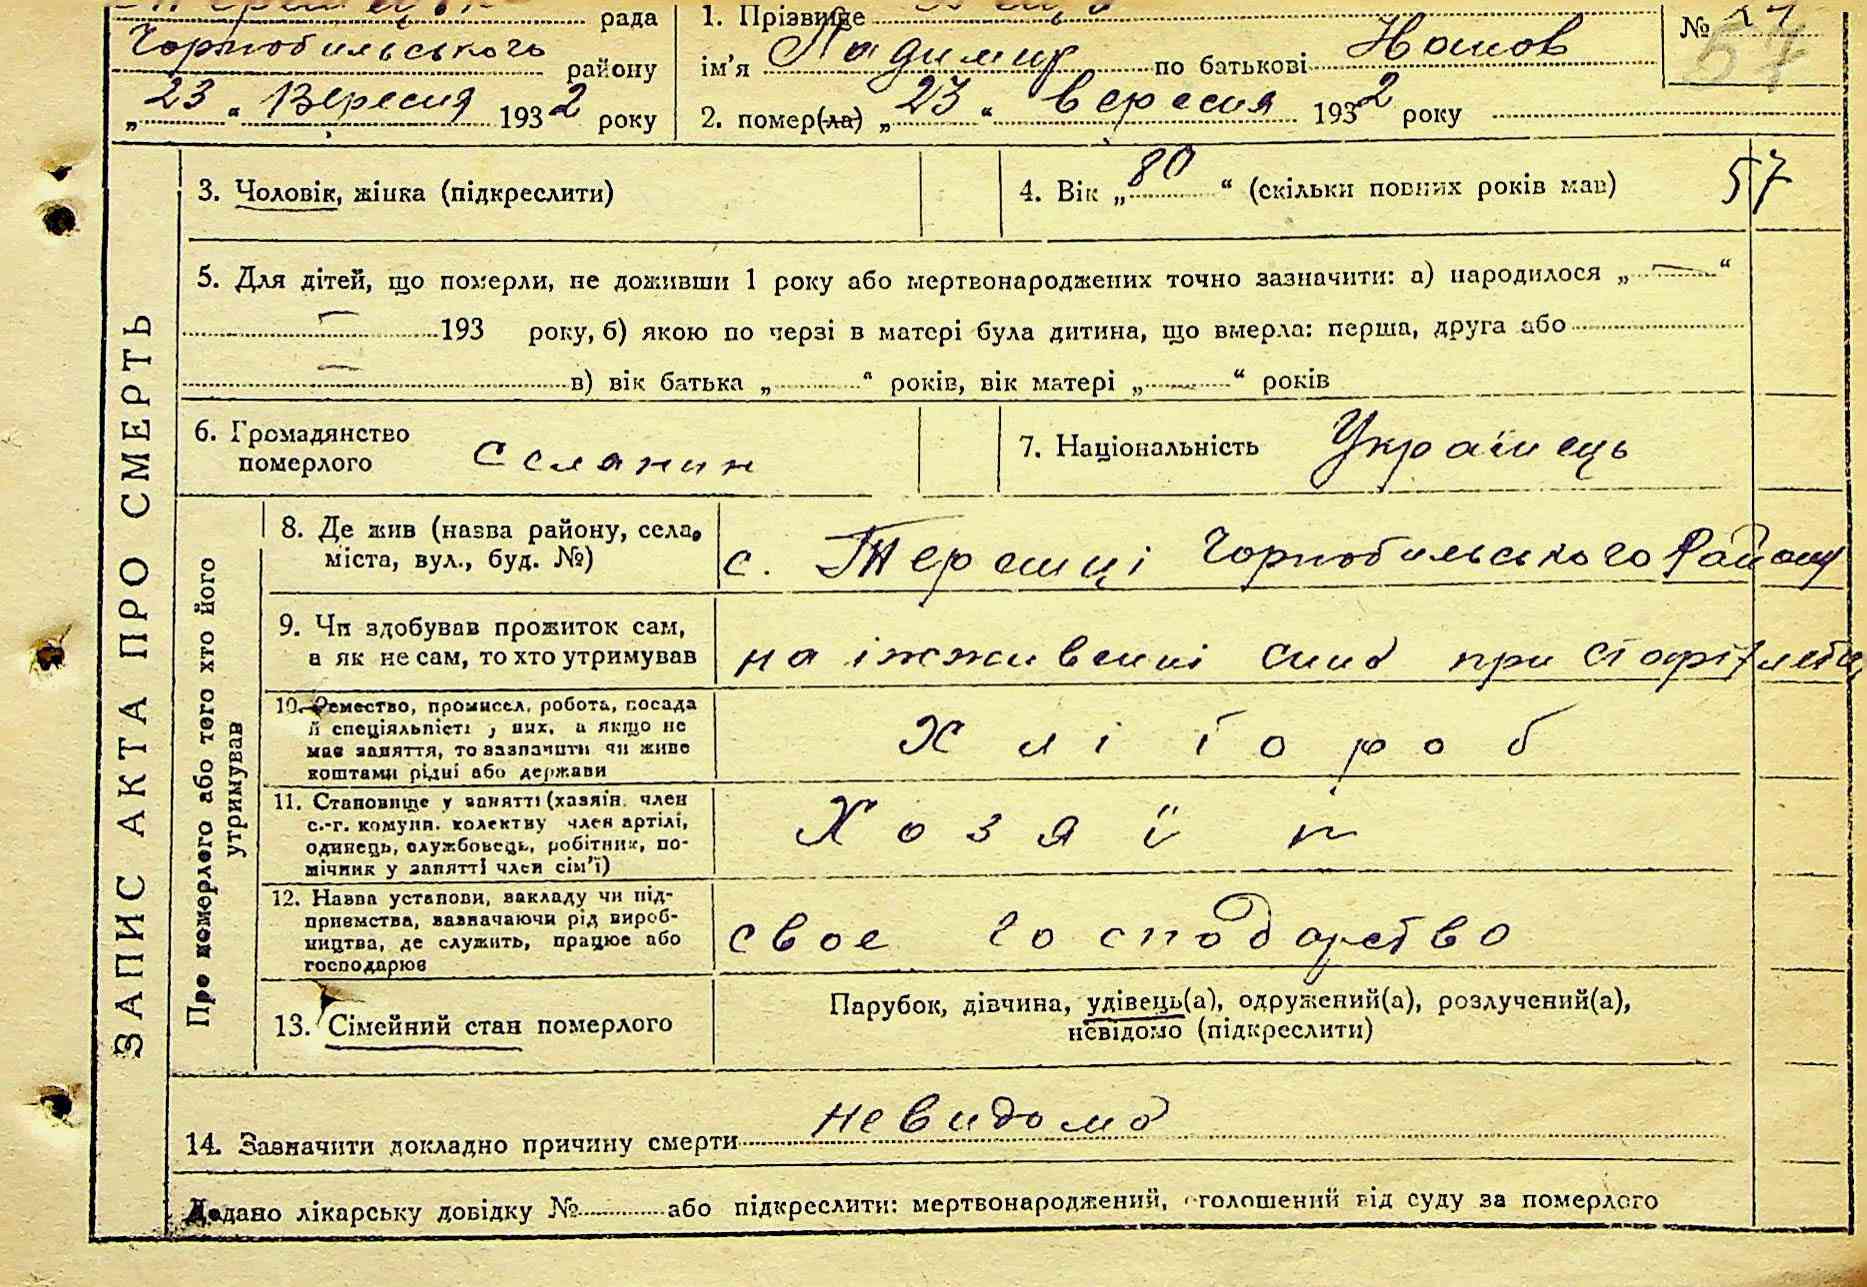 рада 1. Прізвище №
Чорнобильського району ім’я Ладимир по батькові 57
„ 23 “ Вересня 1932 року 2. помер(ла) „ 23 “ вересня 1932 року
3. Чоловік, жінка (підкреслити) 4. Вік „ 80 “ (скільки повних років мав) 57
5. Для дітей, що померли, не доживши 1 року або мертвонароджених точно зазначити: а) народилося „ — “
— 193 року, б) якою по черзі в матері була дитина, що вмерла: перша, друга або
— в) вік батька „ “ років, вік матері „ “ років
6. Громадянство
померлого Селянин 7. Національність Українець
ЗАПИС АКТА ПРО СМЕРТЬ
Про померлого або того хто його
утримував
8. Де жив (назва району, села,
міста, вул., буд. №) с. Теремці Чорнобильського Району
9. Чи здобував прожиток сам,
а як не сам, то хто утримував на іжживенні сина при
10. Ремество, промисел, робота, посада
й спеціяльність у них, а якщо не
має заняття, то зазначити чи живе
коштами рідні або держави Хлібороб
11. Становище у занятті (хазяїн, член
с.-г. комуни, колектву член артілі,
одинець, службовець, робітник, по-
мічник у занятті член сім’ї) Хозяїн
12. Назва установи, закладу чи під-
приємства, зазначаючи рід вироб-
ництва, де служить, працює або
господарює своє господарство
13. Сімейний стан померлого Парубок, дівчина, удівець(а), одружений(а), розлучений(а),
невідомо (підкреслити)
14. Зазначити докладно причину смерти невидомо
Додано лікарську довідку № або підкреслити: мертвонароджений, оголошений від суду за померлого